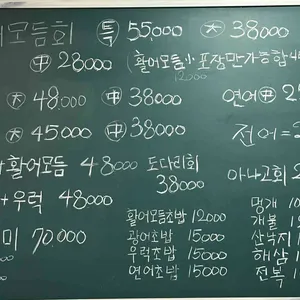 어모듬회 (특) 55,000 (大) 38000
(中) 28000 (활어모듬小 포장만가능함
12000
(大) 48,000 (中) 38000 연어(中) 2
(大) 45000 (中) 38000 전어=
활어모듬 48000 도다리회 38000 아나고회
+우럭 48000
미 70,000
활어모듬초밥 12000
광어초밥 15000
우럭초밥 15000
연어초밥 15000
멍게 10
개불 1
산낙지
해삼 1
전복 1